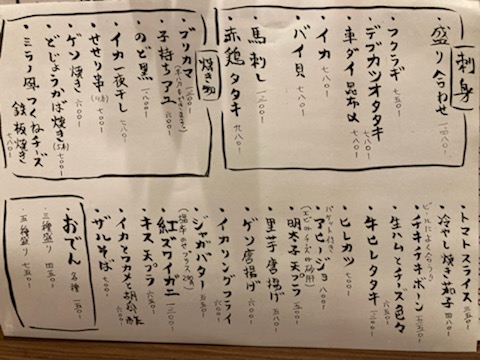 刺身
・盛り合わせ 一二八〇-
・フクラギ 七五〇-
・デブカツオタタキ 七八〇-
・車ダイ昆布〆 七八〇-
・イカ 七八〇-
・バイ貝 七八〇-
・馬刺し 一二〇〇-
・赤鶏タタキ 九八〇-
焼き物
・ブリカマ
・子持ちアユ 六〇〇-
・のど黒 一八〇〇-
・イカ一夜干し 七八〇-
・せせり串
・ゲソ焼き 六〇〇-
・どじょうかば焼き 七〇〇-
・ミラノ風つくねチーズ鉄板焼き 七八〇-
・トマトスライス 三五〇-
・冷やし焼き茄子 四八〇-
ビールによく合う
・チキンラキボーン 五五〇-
・生ハムとチーズ色々
・牛ヒレタタキ
・ヒレカツ 七〇〇-
バゲット付き
・アヒージョ 八〇〇-
・明太子天プラ 五八〇-
・里芋唐揚げ 五五〇-
・ゲソ唐揚げ 六〇〇-
・イカリングフライ 六〇〇-
・ジャガバター 五五〇-
・紅ズワイガニ 一二〇〇-
・キス天プラ 六五〇-
・イカとワカメと胡瓜酢 六〇〇-
・ザルそば 七〇〇-
・おでん 各種 一五〇-
・三種盛り 四五〇-
・五種盛り 七五〇-